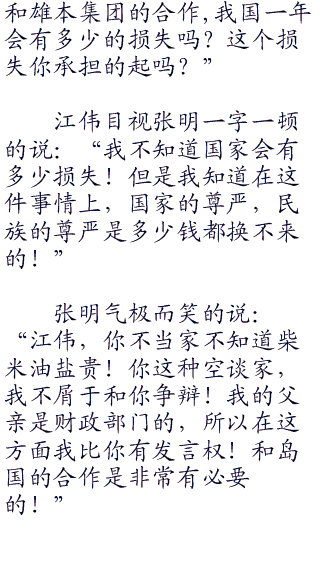 和雄本集团的合作,我国一年
会有多少的损失吗？这个损
失你承担的起吗？”
江伟目视张明一字一顿
的说：“我不知道国家会有
多少损失！但是我知道在这
件事情上，国家的尊严，民
族的尊严是多少钱都换不来
的！”
张明气极而笑的说：
“江伟，你不当家不知道柴
米油盐贵！你这种空谈家，
我不屑于和你争辩！我的父
亲是财政部门的，所以在这
方面我比你有发言权！和岛
国的合作是非常有必要
的！”